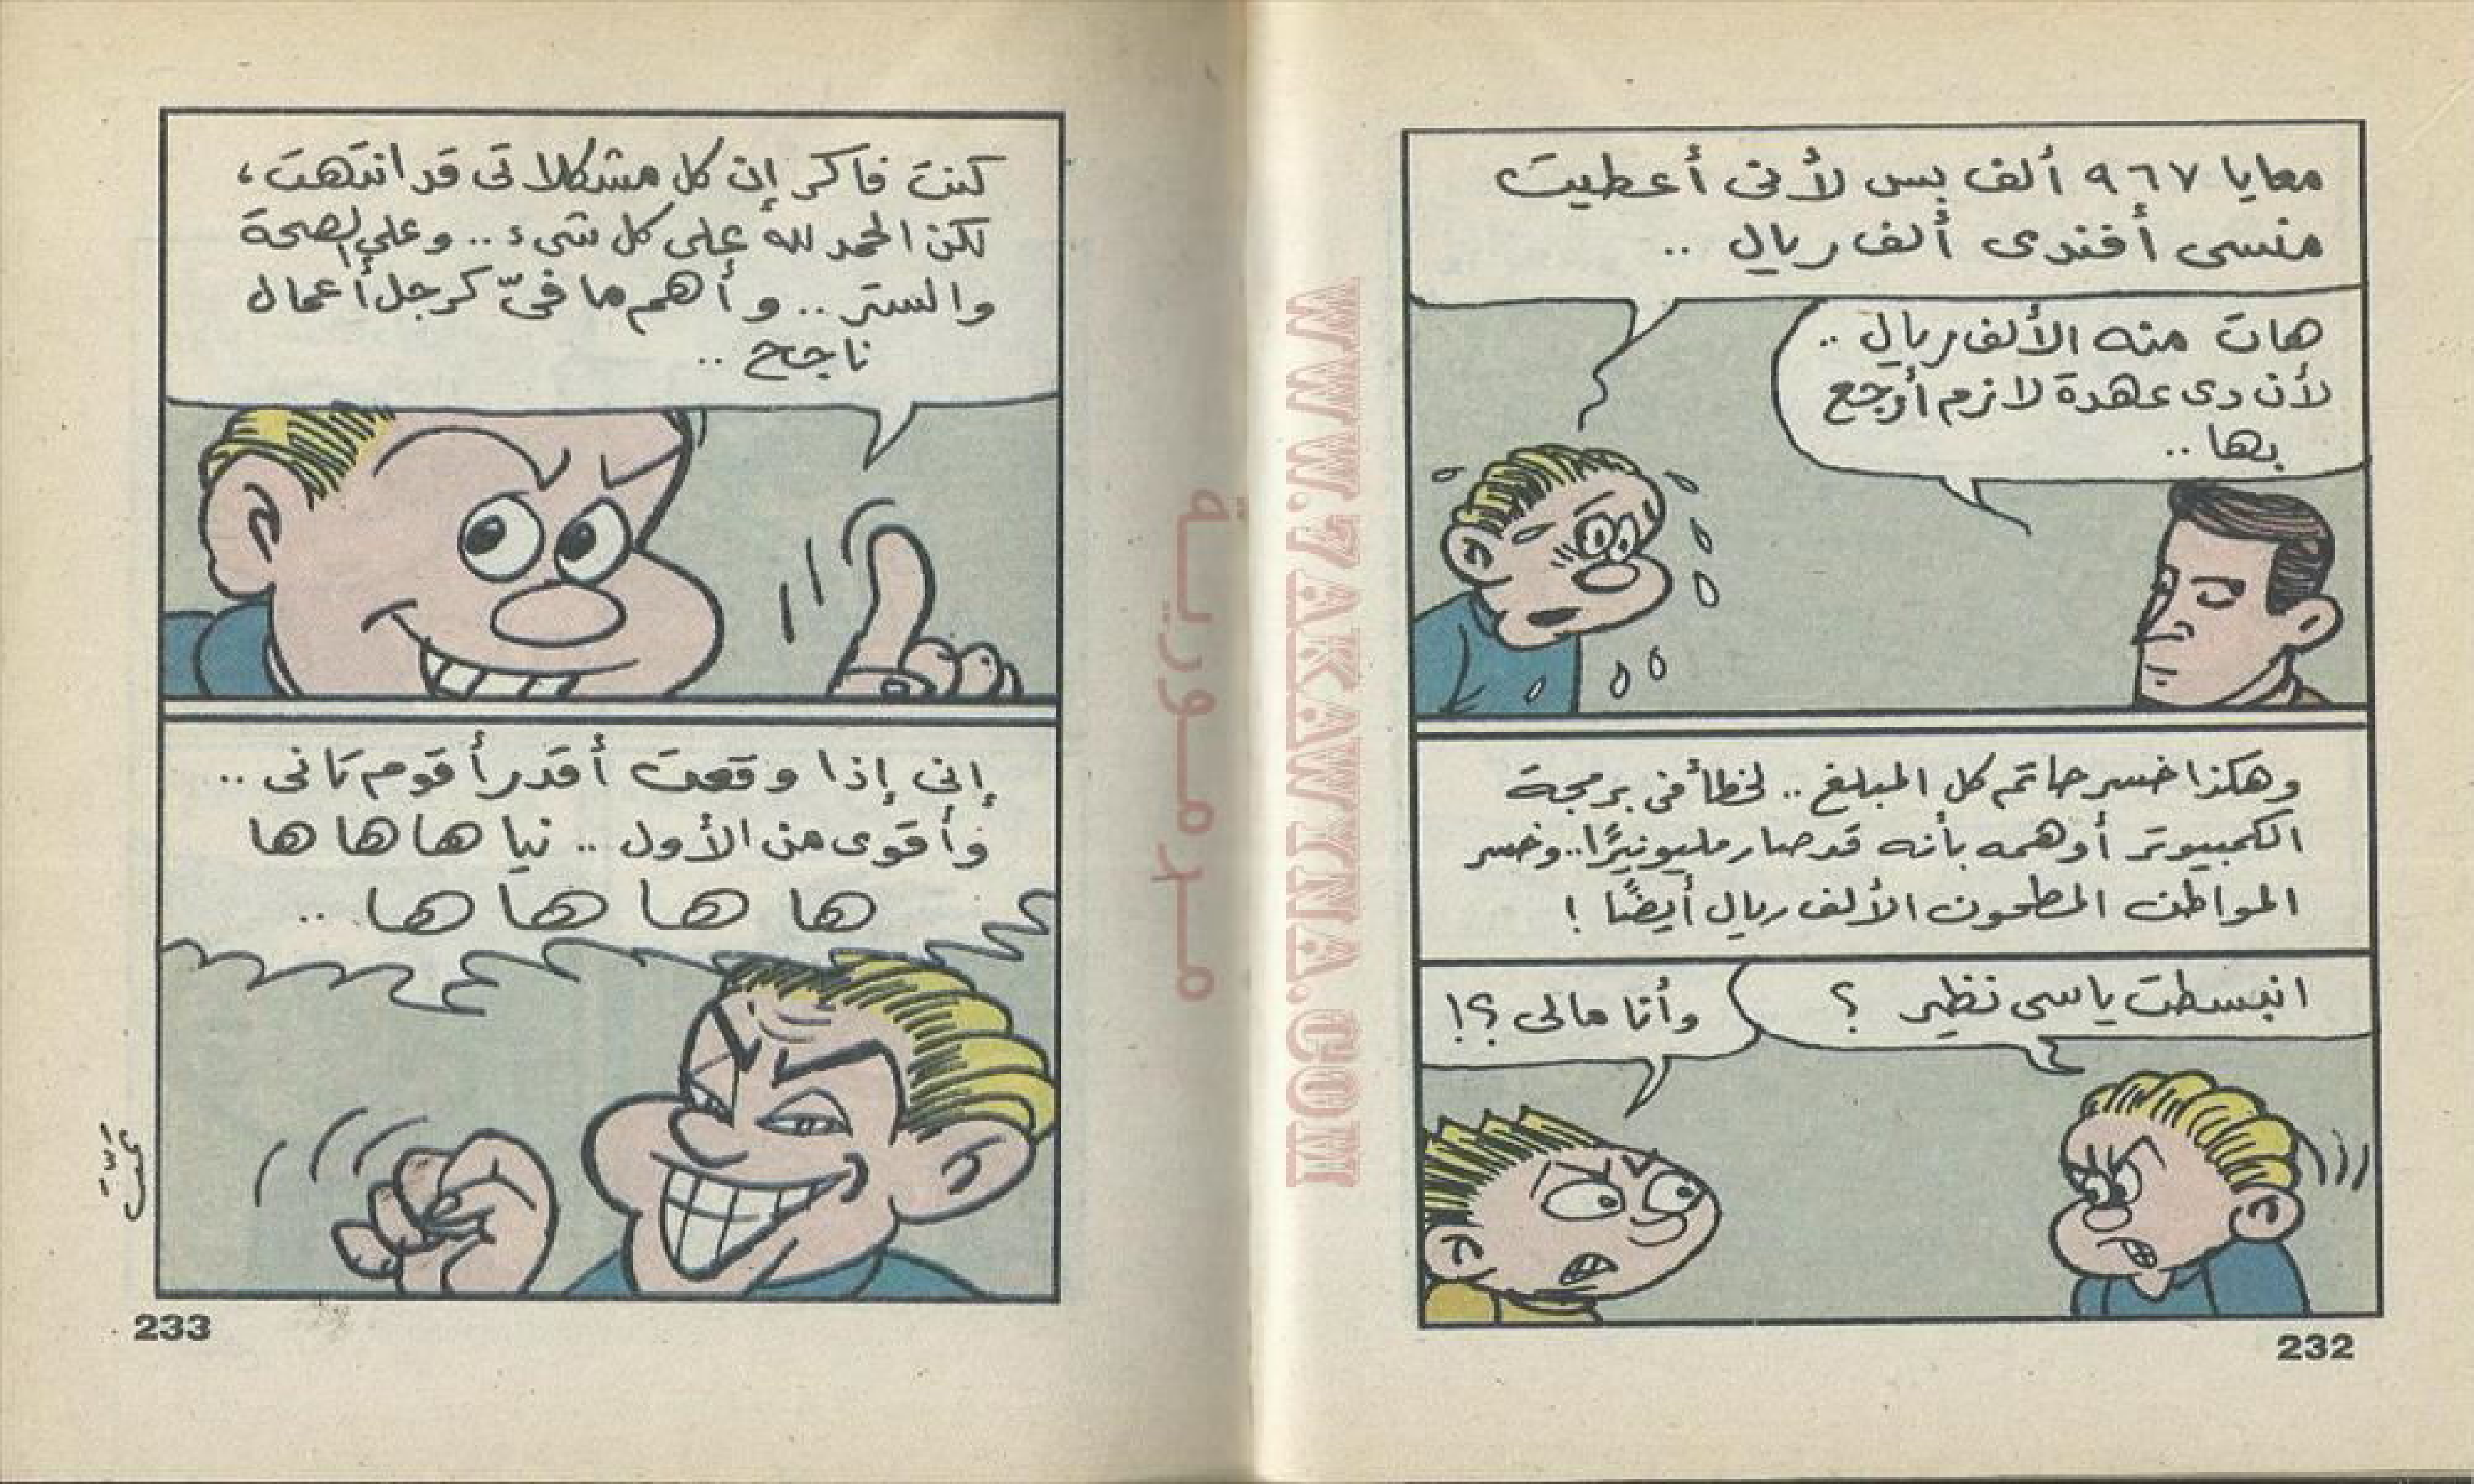 معايا ٩٦٧ ألف بس لأنى أعطيت
منسى أفندى ألف ريال ..
هات منه الألف ريال ..
لأن دى عهدة لازم أرجع
بها ..
وهكذا خسر حاتم كل المبلغ .. لخطأ فى برمجة
الكمبيوتر أوهمه بأنه قد صار مليونيرًا .. وخسر
المواطن المطحون الألف ريال أيضًا !
انبسطت يا سى نظير ؟
وأنا مالى ؟!
232
كنت فاكر إن كل مشكلاتى قد انتهت ،
لكن الحمد لله على كل شىء .. وعلى الصحة
والستر .. وأهم ما فىّ كرجل أعمال
ناجح ..
إنى إذا وقعت أقدر أقوم تانى ..
وأقوى من الأول .. نيا ها ها ها
ها ها ها ها ..
تمت
233
WWW.7AKAWINA.COM